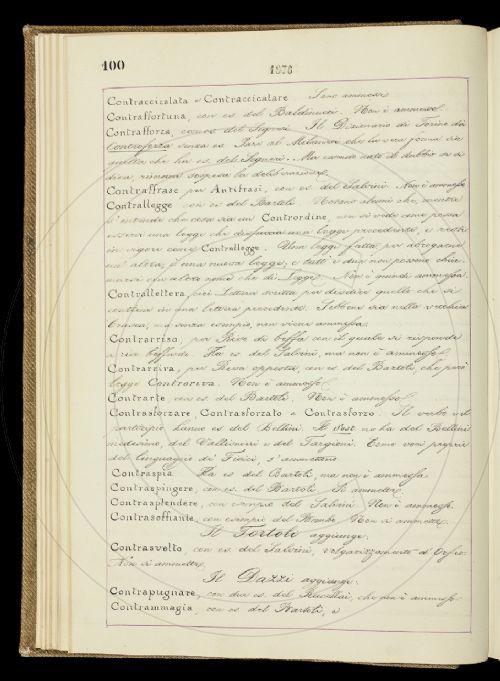 100
1878
Contraccicalata e Contraccicalare. Sono ammesse
Contraffortuna, con es. del Baldinucci. Non è ammesso.
Contrafforza, con es. del Segneri. Il Dizionario di Torino dà
Controforza senza es. Pare al che la vera forma sia
quella che ha es. del Segneri. Ma essendo nato il dubbio se si
dica, rimane sospesa la deliberazione.
Contraffrase per Antifrasi, con es. del Salvini. Non è ammessa
Contrallegge con es. del Bartoli. alcuni che, mentre
s'intende che cosa sia un Contrordine, non si vede come possa
esservi una legge che una legge precedente, e resti
in vigore come Contrallegge. Una legge fatta per abrogarne
un'altra, è una nuova legge, e tutt'e due non possono chia-
marsi con altro nome che di Legge. Non è quindi ammessa.
Contrallettera, cioè Lettera scritta per disdire quello che si
conteneva in una lettera precedente. Sebbene sia nella vecchia
Crusca, ma senza esempio, non viene ammessa.
Contrarriso, per Riso di beffa con il quale si risponde
a riso beffardo. Ha es. del Salvini, ma non è ammesso.
Contrariva, per Riva opposta, con es. del Bartoli, che però
legge Controriva. Non è ammesso.
Contrarte, con es. del Bartoli. Non è ammesso.
Contrasforzare, Contrasforzato e Contrasforzo. Il verbo e il
participio hanno es. del Bellini. Il Sost. ne ha del Bellini
medesimo, del Vallisnieri e del Targioni. Come voci proprie
del linguaggio di Fisici, s'ammettono.
Contraspia. Ha es. del Bartoli, ma non è ammessa.
Contraspingere, con es. del Bartoli. Si ammette.
Contrasplendere, con esempio del Salvini. Non è ammesso.
Contrasoffiante, con esempio del Bembo. Non si ammette.
Il Tortoli aggiunge:
Contrasvolto, con es. del Salvini, volgarizzamento d'Orfeo.
Non si ammette.
Il Dazzi aggiunge:
Contrapugnare, con due es. del Rucellai, che non è ammesso.
Contrammagia, con es. del Bartoli, e